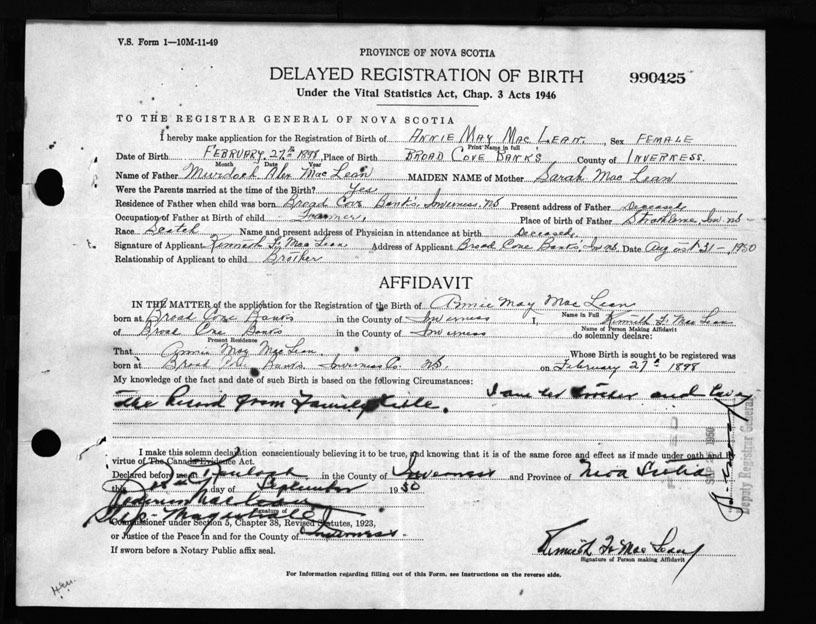 V.S. Form 1—10M-11-49
PROVINCE OF NOVA SCOTIA
DELAYED REGISTRATION OF BIRTH
990425
Under the Vital Statistics Act, Chap. 3 Acts 1946
TO THE REGISTRAR GENERAL OF NOVA SCOTIA
I hereby make application for the Registration of Birth of ANNIE MAY MAC LEAN. Sex FEMALE
Print Name in full
Date of Birth FEBRUARY 27th 1898 Place of Birth BROAD COVE BANKS County of INVERNESS.
Month Date Year
Name of Father Murdoch Alex Mac Lean MAIDEN NAME of Mother Sarah Mac Lean
Were the Parents married at the time of the Birth? Yes
Residence of Father when child was born Broad Cove Banks, Inverness, NS Present address of Father Deceased
Occupation of Father at Birth of child Farmer, Place of birth of Father Strathlorne, Inv. NS —
Race Scotch Name and present address of Physician in attendance at birth Deceased,
Signature of Applicant Kenneth F. Mac Lean Address of Applicant Broad Cove Banks, Inv. NS. Date August 31 —, 1950
Relationship of Applicant to child Brother
AFFIDAVIT
IN THE MATTER of the application for the Registration of the Birth of Annie May Mac Lean
Name in Full
born at Broad Cove Banks in the County of Inverness I, Kenneth F. Mac Lean
Name of Person Making Affidavit
of Broad Cove Banks in the County of Inverness do solemnly declare:
Present Residence
That Annie May Mac Lean Whose Birth is sought to be registered was
born at Broad Cove Banks, Inverness Co. NS. on February 27th 1898
My knowledge of the fact and date of such Birth is based on the following Circumstances: I am her brother and
the Record from Family Bible.
I make this solemn declaration conscientiously believing it to be true, and knowing that it is of the same force and effect as if made under oath and by
virtue of The Canada Evidence Act.
Declared before me at in the County of Inverness and Province of Nova Scotia
this day of September 1950
Signature of
Commissioner under Section 5, Chapter 38, Revised Statutes, 1923,
or Justice of the Peace in and for the County of Inverness.
If sworn before a Notary Public affix seal.
Kenneth F. Mac Lean
Signature of Person making Affidavit
For Information regarding filling out of this Form, see instructions on the reverse side.
SEP 1950
Deputy Registrar General